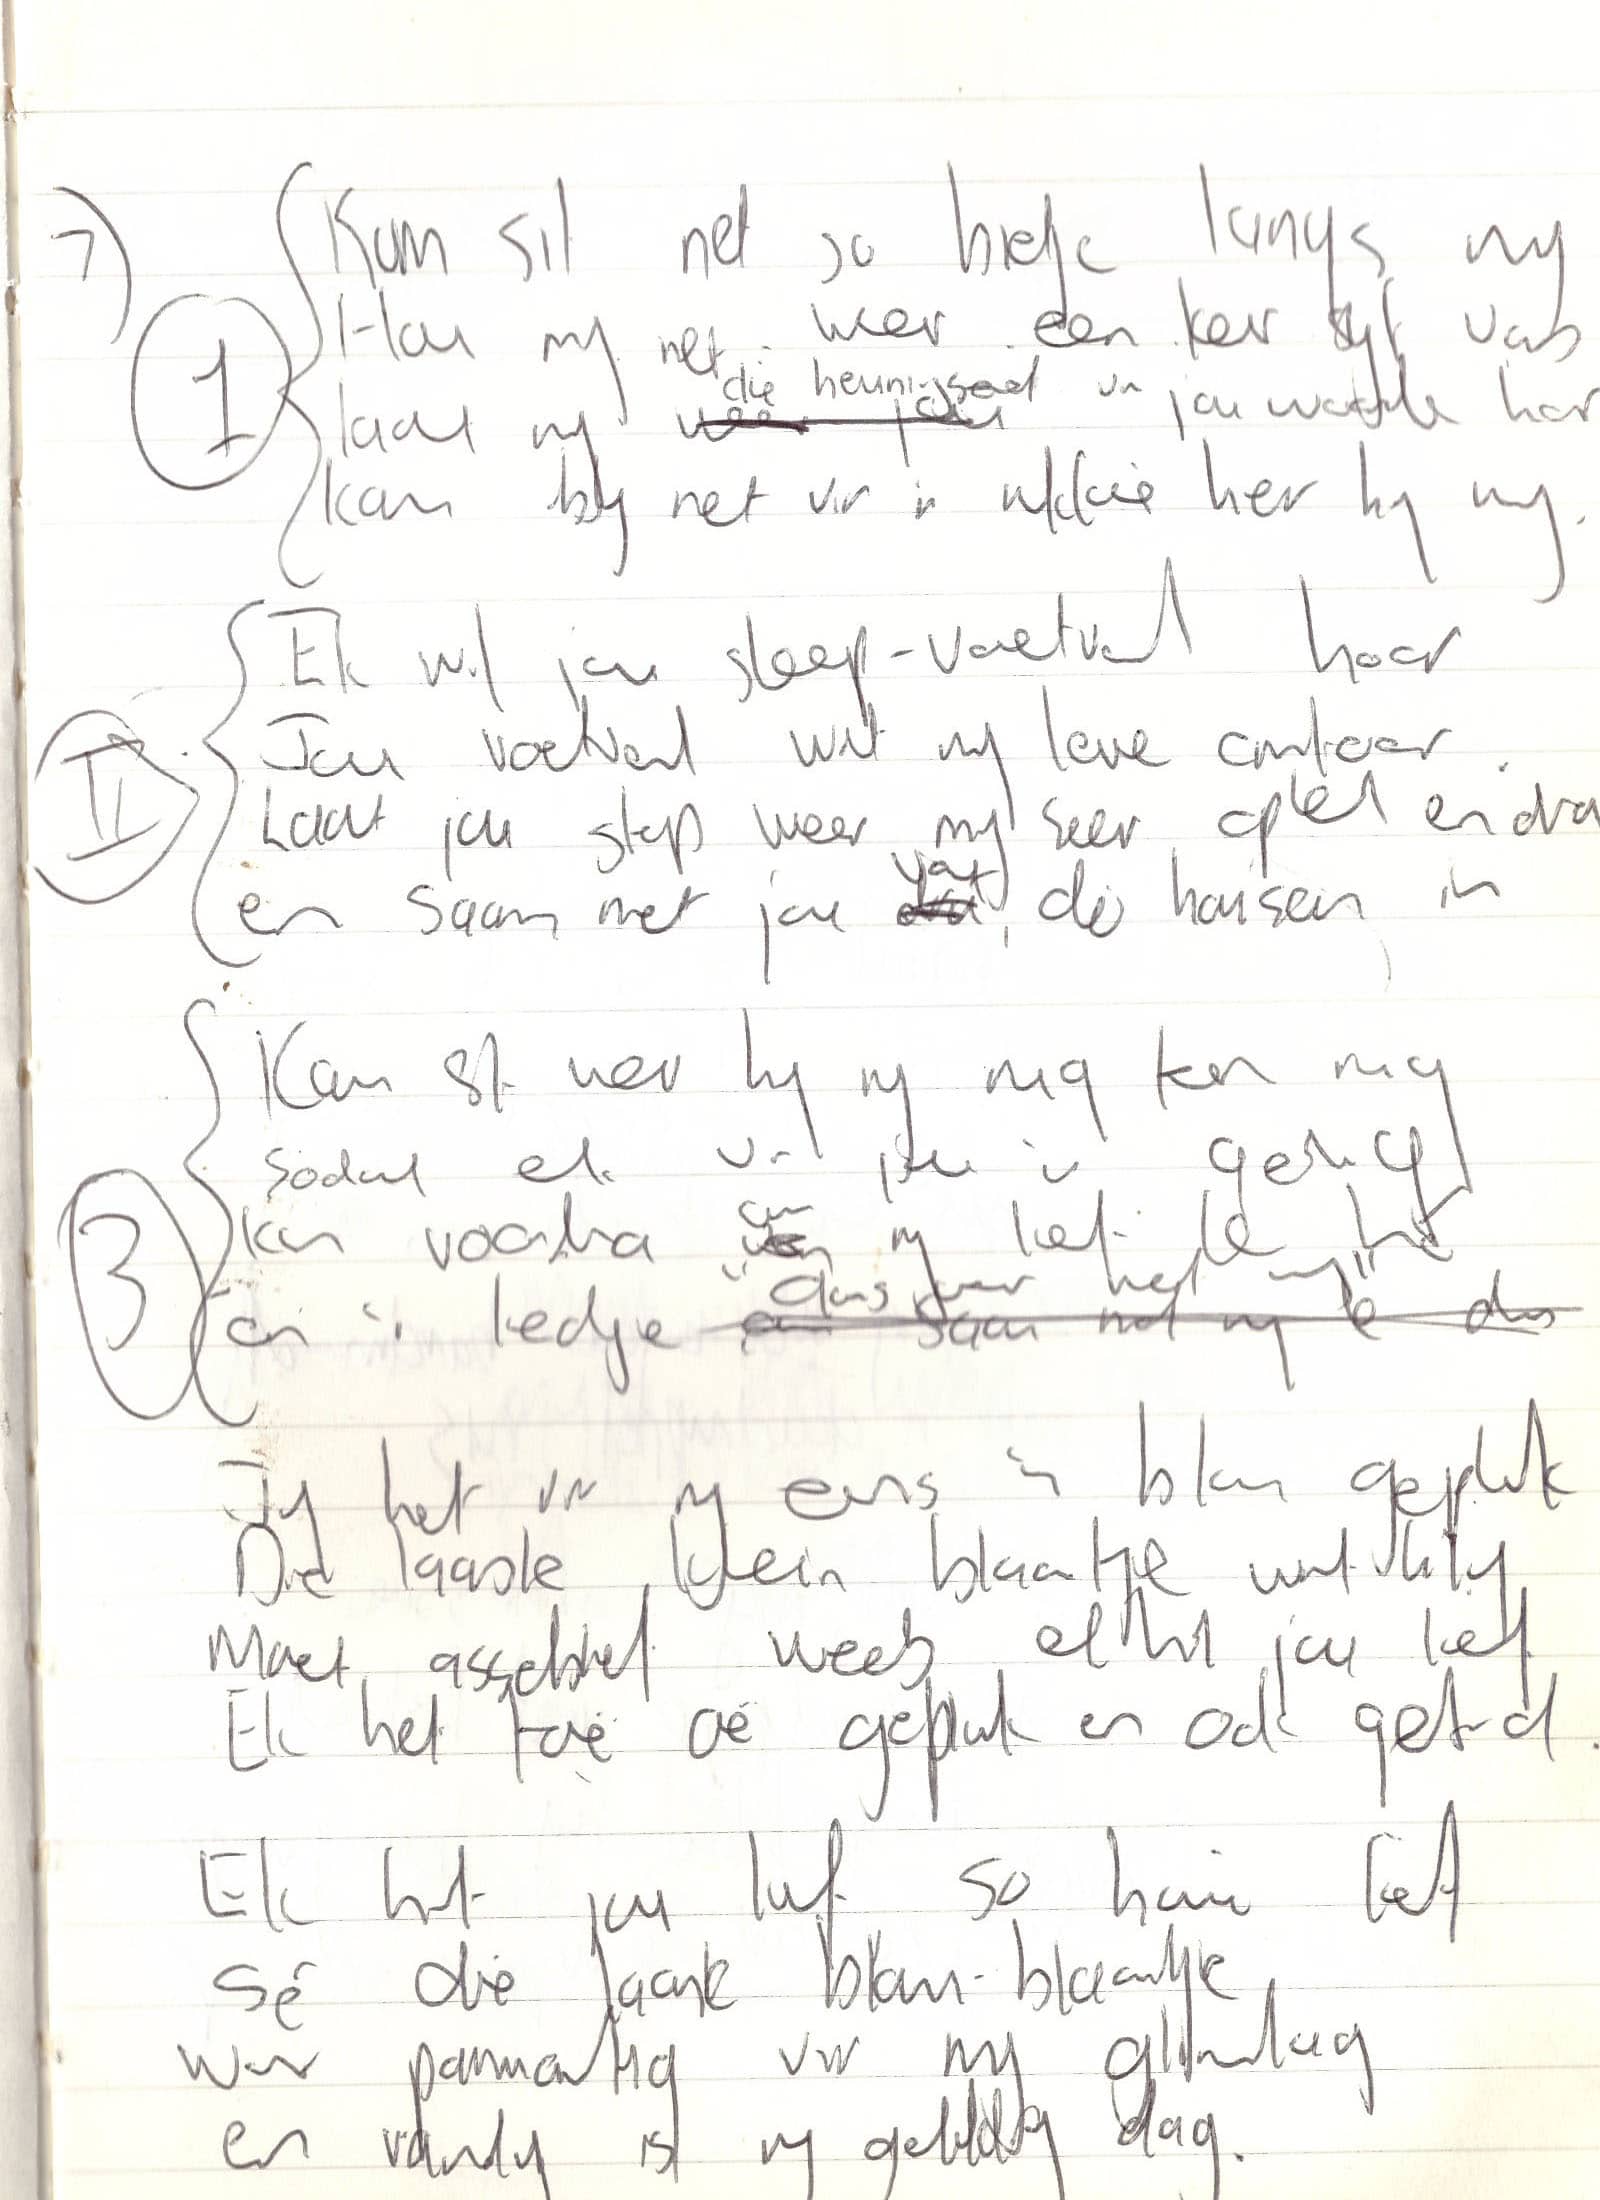 7)
1 Kom sit net so bietjie langs my
Hou my net weer een keer styf vas
laat my die heuningsoet van jou woorde hoor
kom bly net vir 'n ukkie hier by my.
II Ek wil jou sleep-voetval hoor
Jou voetval wat my lewe omtoor.
Laat jou stap weer my seer optel en dra
en saam met jou vat, die huis in
3 Kom sit weer by my nog een
sodat ek vir jou 'n gedig
kan voordra my liefde
en 'n liedjie "dans weer met my"
Jy het vir my eens 'n blom gepluk
Die laaste klein blaartjie wat bly
Moet asseblief wees ek het jou lief
Ek het toe oë gepluk en ook getel.
Ek het jou lief so baie lief
sê die laaste blom-blaartjie
wär permantig vir my glimlag
en vandag is my gelukkig dag.